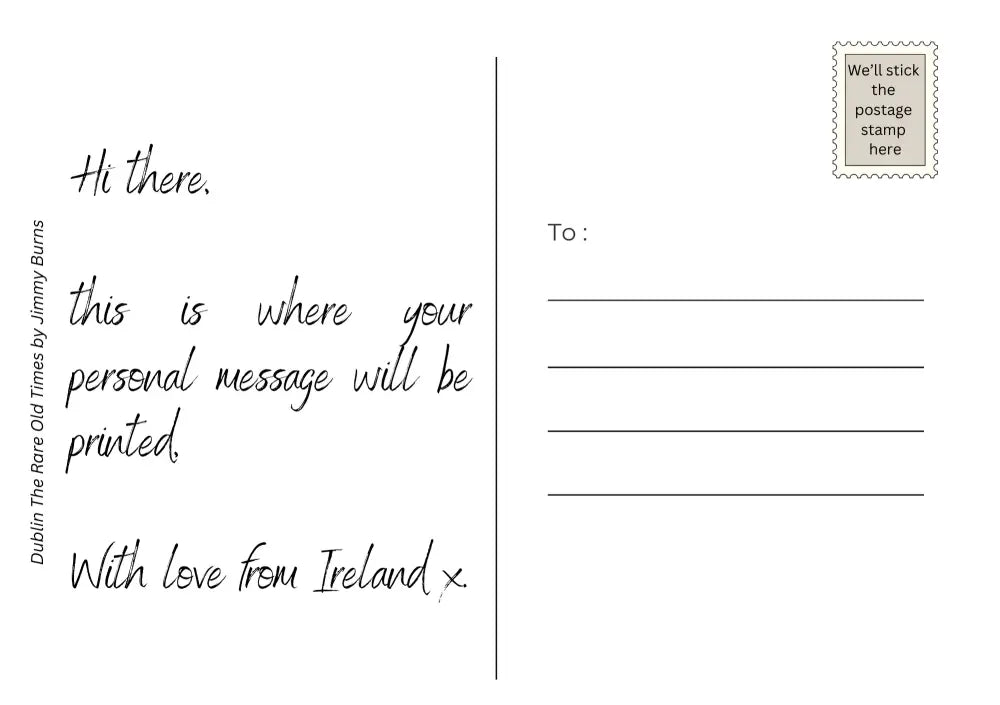 Dublin The Rare Old Times by Jimmy Burns
Hi there,
this is where your
personal message will be
printed,
With love from Ireland x.
We’ll stick
the
postage
stamp
here
To :